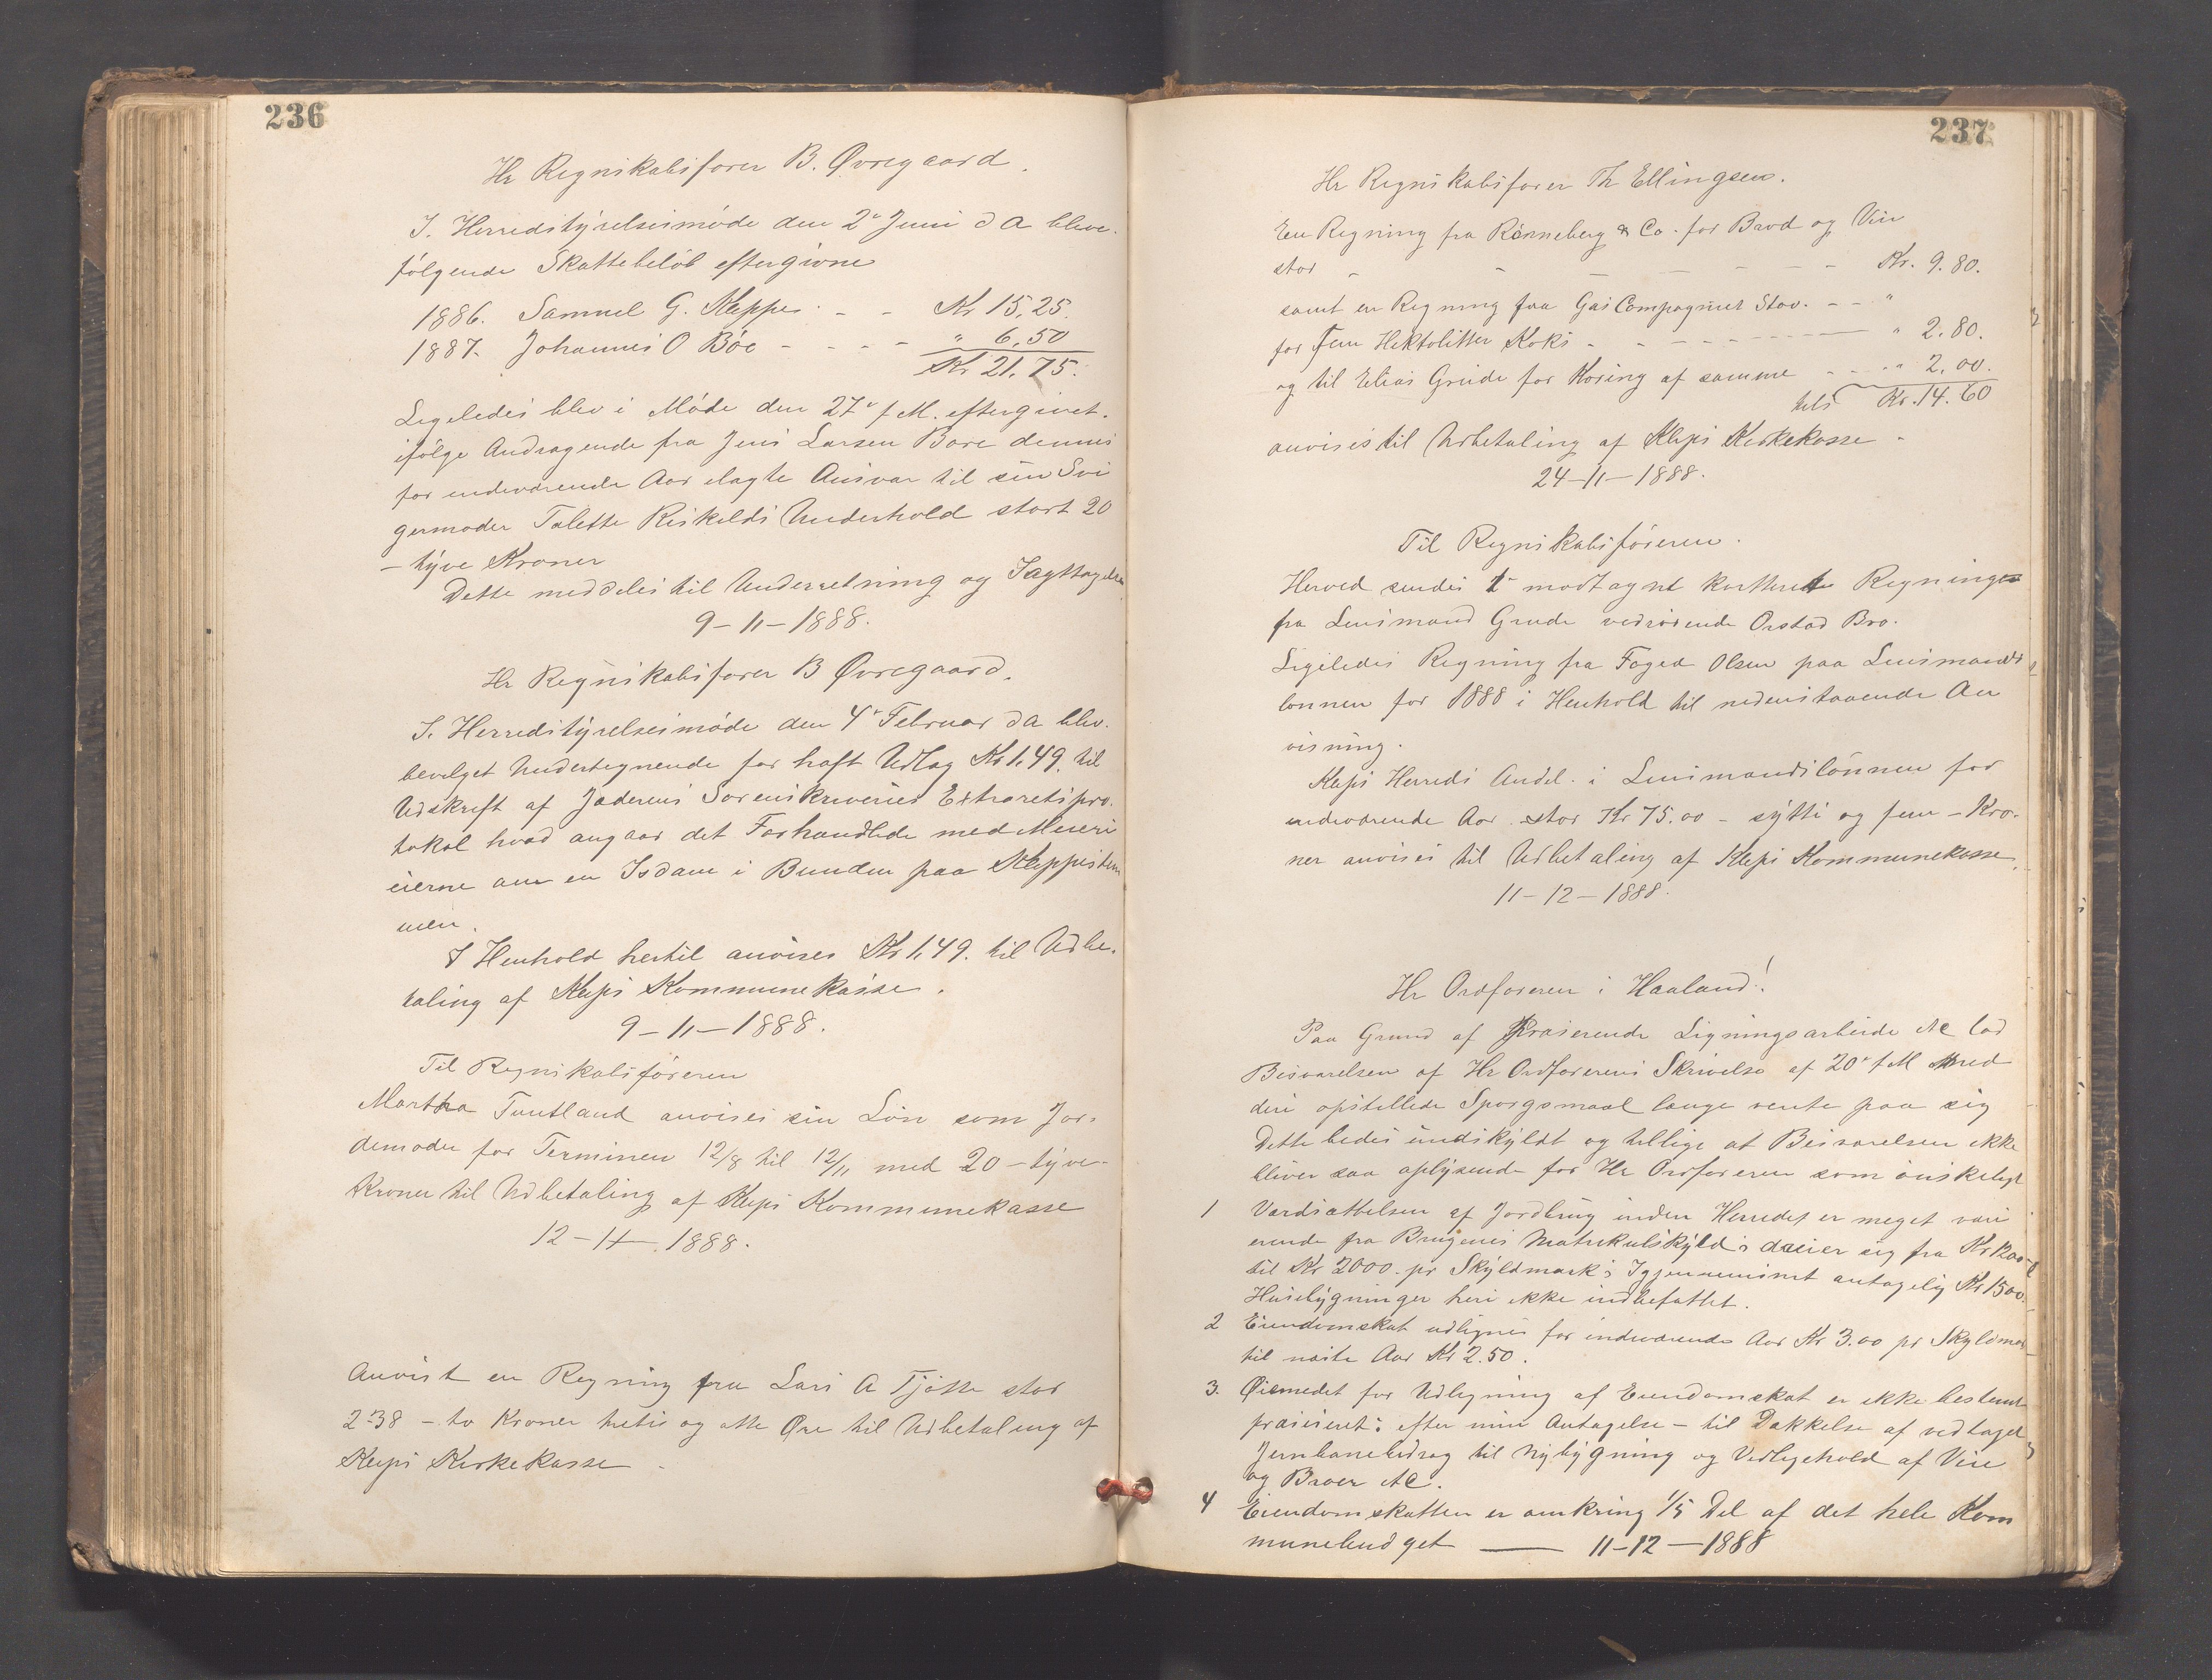 236
Hr Regnskabsfører B. Øvregaard.
I. Herredstyrelsesmøde den 2den Juni d A bleve
følgende Skattebeløb eftergivne
1886. Samuel G. Kleppe - - Kr 15,25.
1887. Johannes O Bøe - - - - " 6,50
Kr 21.75.
Ligeledes blev i Møde den 27de f. M. eftergivet.
ifølge Andragende fra Jens Larsen Bore dennes
for indeværende Aar ilagte Ansvar til sin Svi
germoder Talette Reskelds Underhold stort 20
- tyve Kroner
Dette meddeles til Underretning og Iagttagelse
9-11-1888.
Hr Regnskabsfører B Øvregaard.
I. Herredstyrelsesmøde den 4de Februar d A blev.
bevilget Undertegnende for haft Udlag Kr 1,49. til
Udskrift af Jæderens Sorenskriveries Extraretspro.
tokol hvad angaar det Forhandlede med Meieri
eierne om en Isdam i Bunden paa Kleppestem
men.
I Henhold hertil anvises Kr 1,49. til Udbe.
taling af Kleps Kommunekasse.
9-11-1888.
Til Regnskabsføreren
Martha Tuntland anvises sin Løn som Jor-
demoder for Terminen 12/8 til 12/11 med 20 - tyve-
Kroner til Udbetaling af Kleps Kommunekasse
12-11-1888.
Anvist en Regning fra Lars A Tjøtte stor
2-38 - to Kroner treti og otte Øre til Udbetaling af
Kleps Kirkekasse
237
Hr Regnskabsfører Th Ellingsen.
En Regning fra Rønneberg & Co. for Brød og Vin
stor - - - - - - Kr. 9.80.
samt en Regning fra Gas Compagniet Stav. - - "
for fem Hektolitter Koks - - - - - " 2.80.
og til Elias Grude for Kjøring af samme - - " 2,00.
tils Kr. 14.60
anvises til Udbetaling af Kleps Kirkekasse
24-11-1888.
Til Regnskabsføreren.
Herved sendes modtagne kvitterte Regninger
fra Lensmand Grude vedrørende Orstad Bro.
Ligeledes Regning fra Foged Olsen paa Lensmands
lønnen for 1888 i Henhold til nedenstaaende An
visning.
Kleps Herreds Andel i Lensmandslønnen for
indeværende Aar stor Kr 75.00 - sytti og fem - Kro-
ner anvises til Udbetaling af Kleps Kommunekasse.
11-12-1888.
Hr Ordføreren i Haaland!
Paa Grund af Præserende Ligningsarbeide etc lod
Besvarelsen af Hr Ordførerens Skrivelse af 20de f M med
deri opstillede Spørgsmaal længe vente paa sig
Dette bedes undskyldt og tillige at Besvarelsen ikke
bliver saa oplysende for Hr Ordføreren som ønskeligt
1 Værdsættelsen af Jordbrug inden Herredet er meget vari
erende fra Brugenes Matrikulskyld; dreier sig fra Kr 1200
til Kr 2000. pr Skyldmark; Igjennemsnit antagelig Kr 1500.
Husebygninger heri ikke indbefattet.
2 Eiendomskat udlignes for indeværende Aar Kr 3.00 pr Skyldmark
til næste Aar Kr 2.50.
3. Øiemedet for Udligning af Eiendomskat er ikke bestemt
præsiseret: efter min Antagelse - til Dækkelse af vedtaget
Jernbanebidrag til Nybygning og Vedligehold af Veie
og Broer etc.
4 Eiendomskatten er omkring 1/5 Del af det hele Kom
munebudget ― 11-12-1888